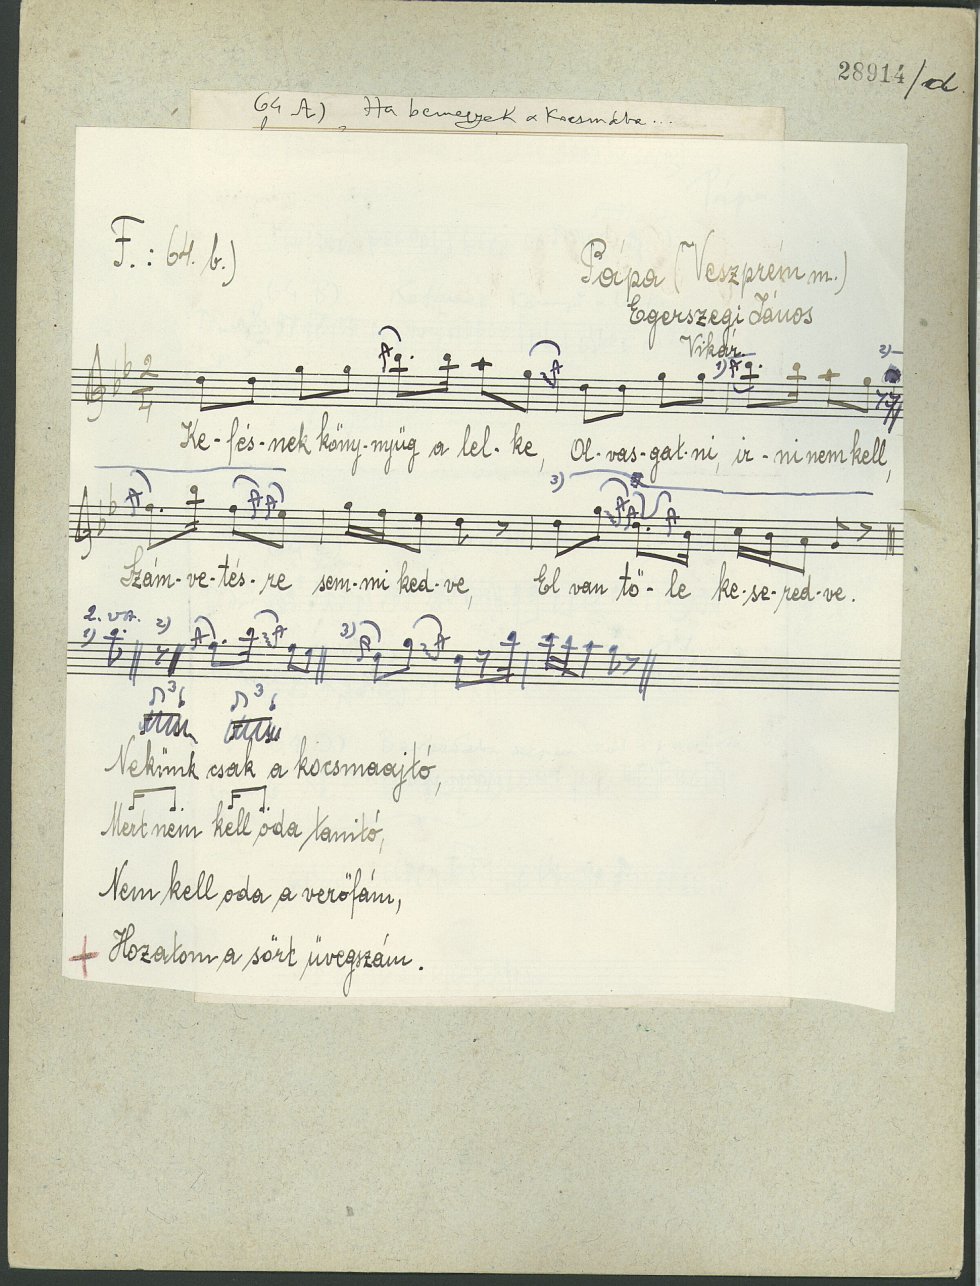 28914/
64 A) Ha bemegyek a kocsmába...
F.: 64. b.)
Pápa (Veszprém m.)
Egerszegi János
Vikár
1) 2)
2
4
Ke-fés-nek köny-nyüg a lel-ke, Ol-vas-gat-ni, ir-ni nem kell,
3)
Szám-ve-tés-re sem-mi ked-ve, El van tö-le ke-se-red-ve.
2. va.
1) 2) 3)
3 3
Nekünk csak a kocsmaajtó,
Mert nem kell oda tanító,
Nem kell oda a veröfám,
+ Hozatom a sört üvegszám.